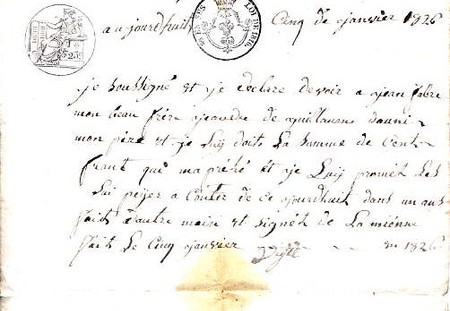 aujourdhuit Cinq de janvier 1826
je soussigné et je declare devoir a jean fabre
mon beau frère gendre de guillaume
mon père et je luy doits La somme de Cent
frant qui ma prété et je Luy promét Les
Lui peÿer a Conter de ce ajourdhuit dans un an
fait d'autre main et signét de La mienne
fait Le Cinq janvier en 1826